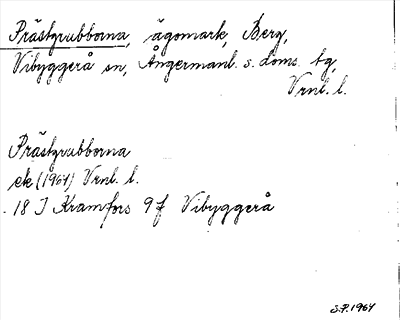 Prästgrubborna, ägomark, Berg,
Vibyggerå sn, Ångermanl. s. doms. tg,
Vrnl. l.
Prästgrubborna
ek (1964) Vrnl. l.
18 I Kramfors 9f Vibyggerå
S.P. 1964